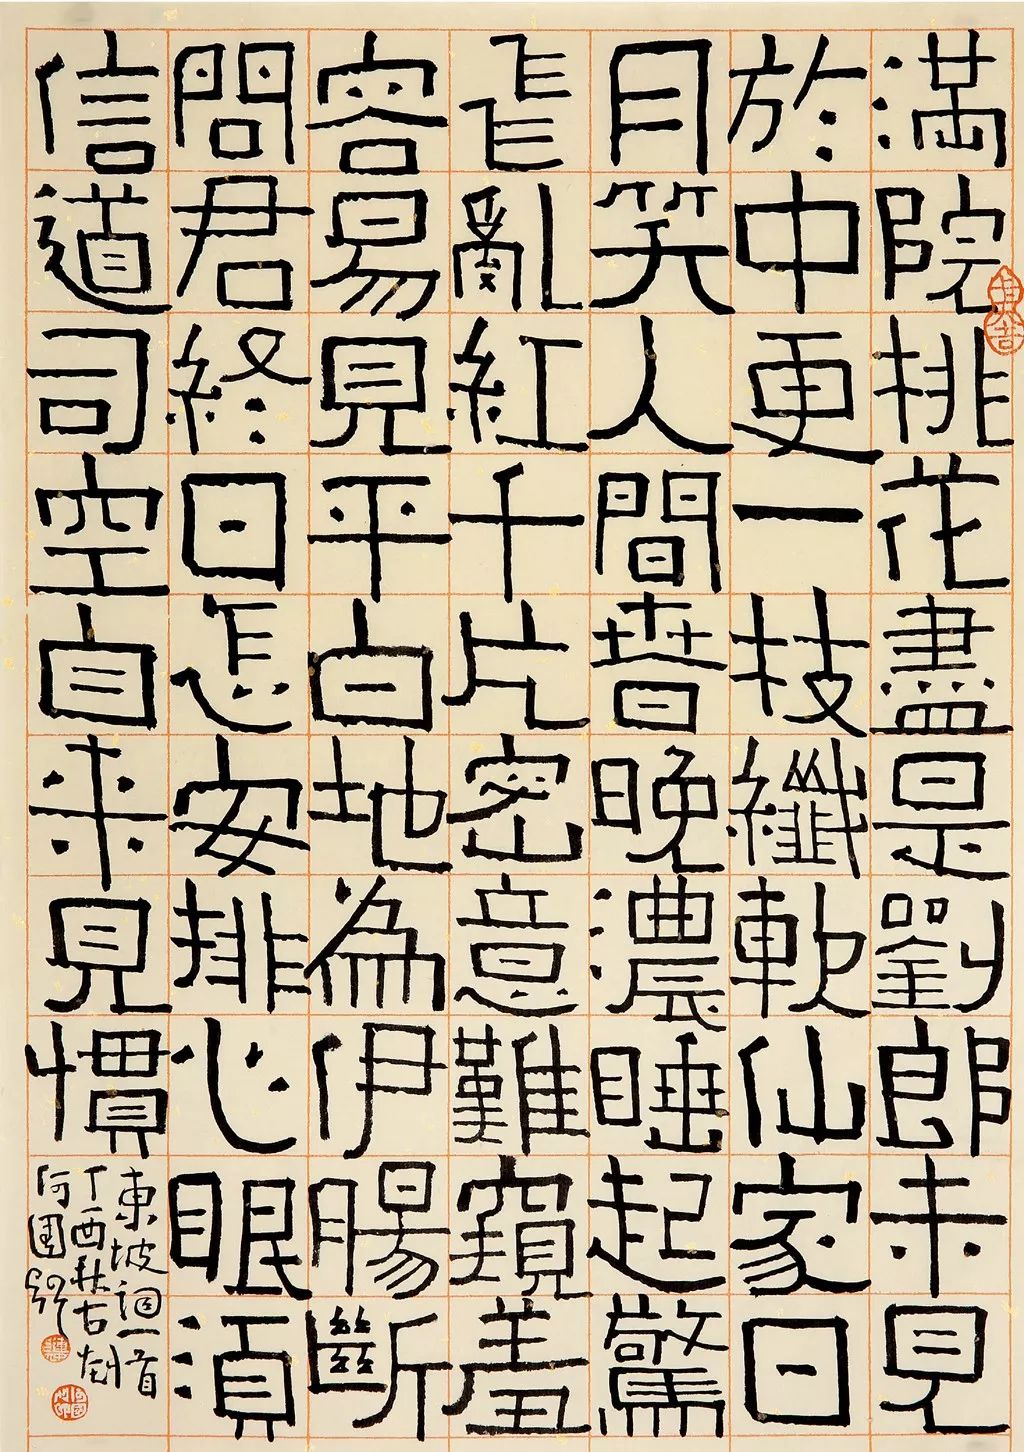 滿院桃花盡是劉郎未見
於中更一枝纖軟仙家日
月笑人間春晚濃睡起驚
飛亂紅千片密意難窺羞
容易見平白地為伊腸斷
問君終日怎安排心眼須
信道司空自來見慣
東坡詞一首
丁酉秋古